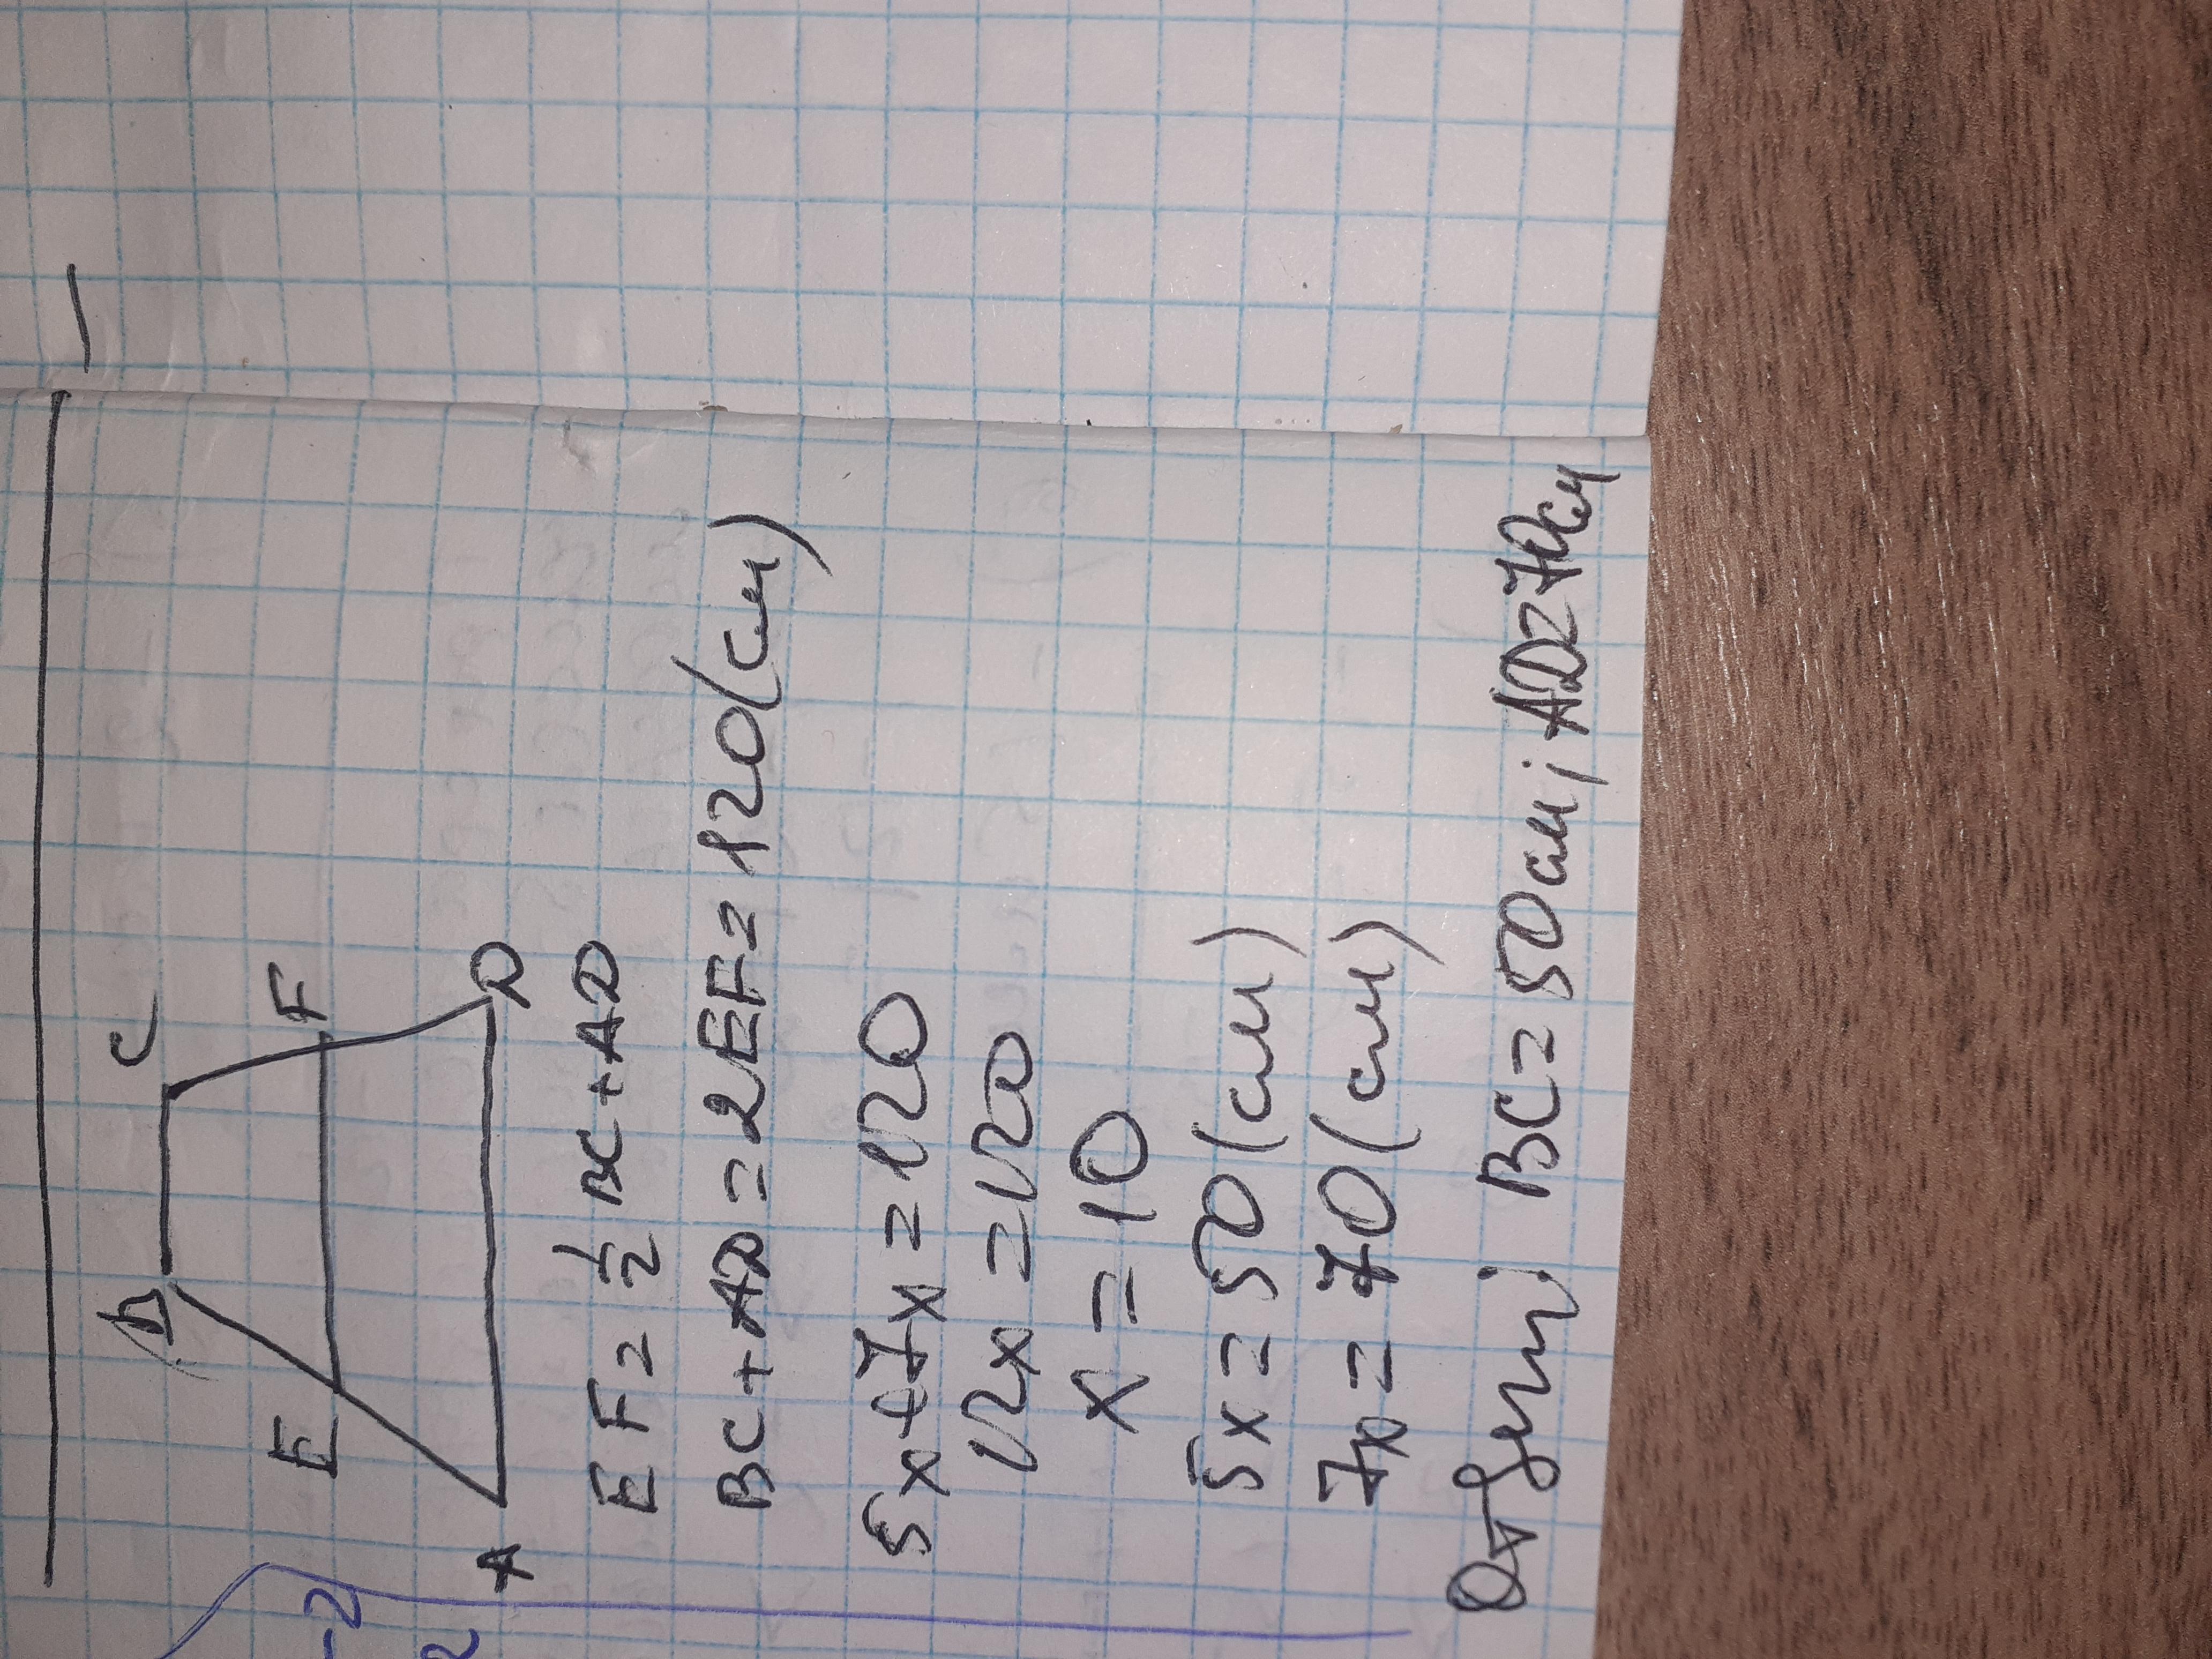 B C
E F
A D
EF = 1/2 BC + AD
BC + AD = 2EF = 120(см)
5x+7x = 120
12x = 120
x = 10
5x = 50(см)
7x = 70(см)
Ответ: BC = 50см; AD=70см
-2
2